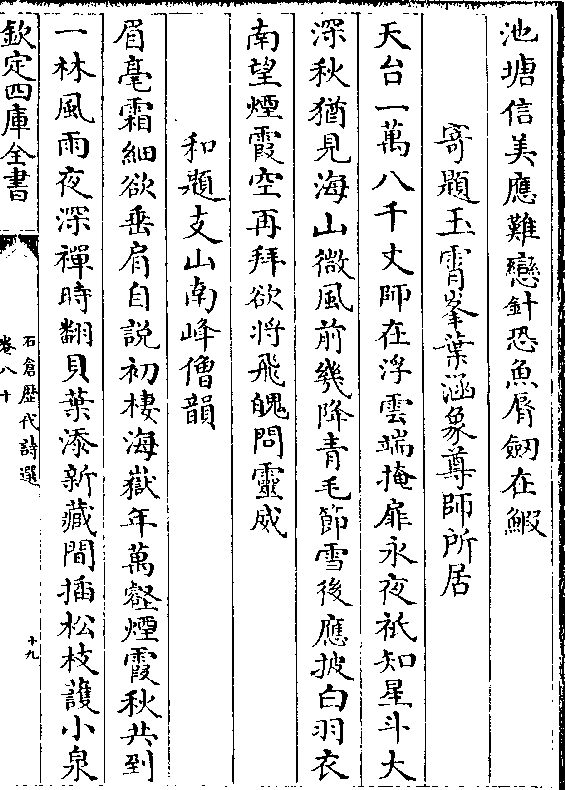 池塘信美應難戀針恐魚脣劒在鰕
寄題玉霄峯葉涵象尊師所居
天台一萬八千丈師在浮雲端掩扉永夜祇知星斗大
深秋猶見海山微風前幾降青毛節雪後應披白羽衣
南望煙霞空再拜欲將飛魄問靈威
和題支山南峰僧韻
眉毫霜細欲垂肩自說初棲海嶽年萬壑煙霞秋共到
一林風雨夜深禪時翻貝葉添新藏間插松枝護小泉
欽定四庫全書
石倉歷代詩選
卷八十
十九